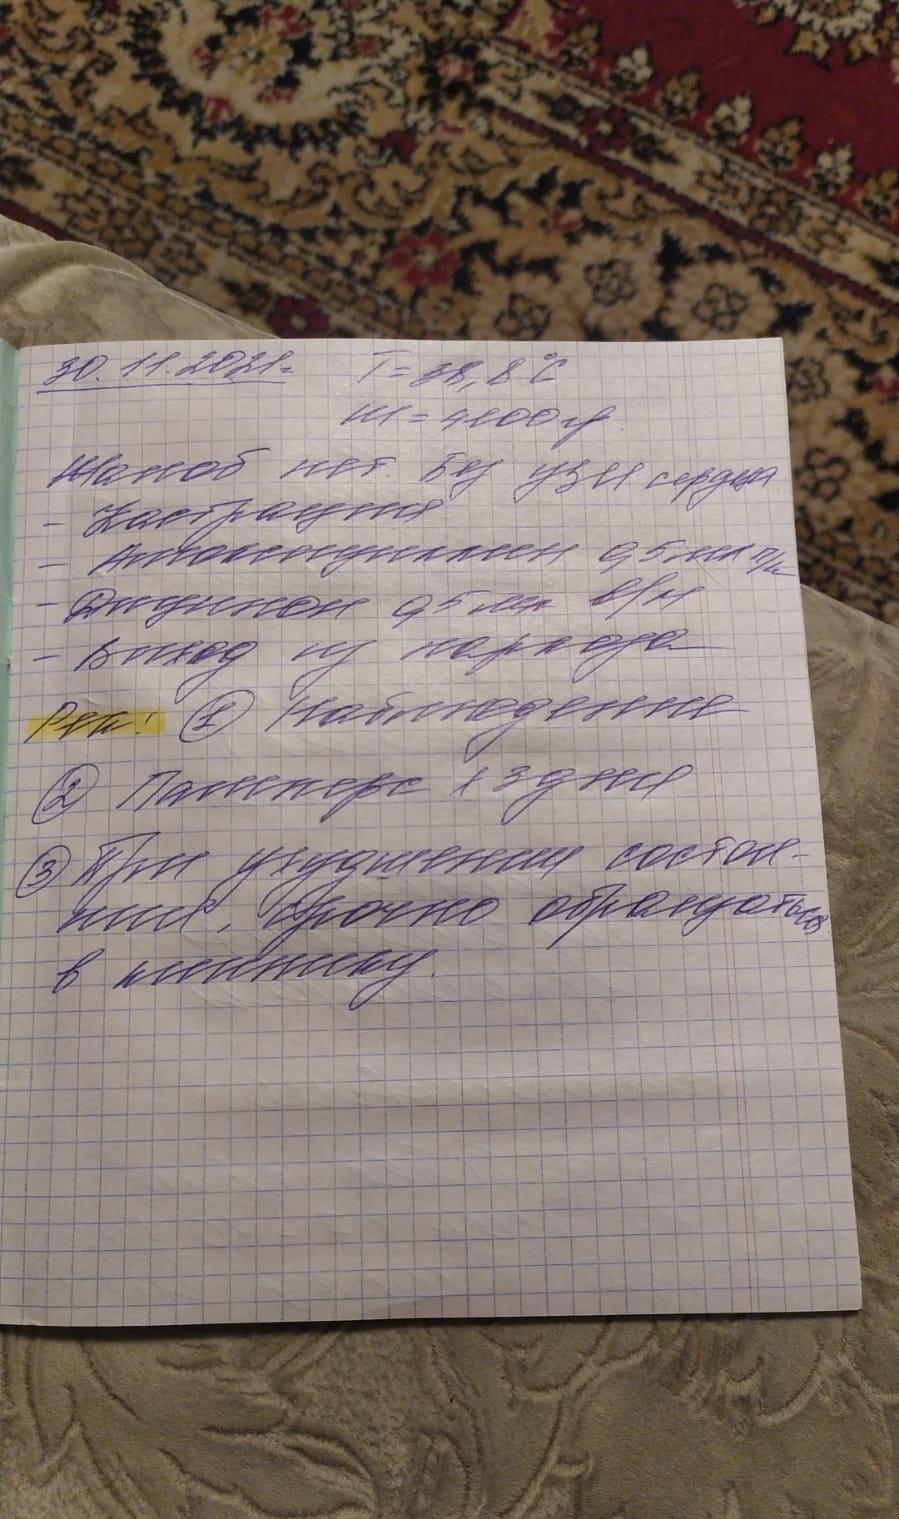 30.11.2021г. T= 38,8°C
m = 4100 гр.
Жалоб нет. Без УЗИ сердца
- Кастрация
- 0,5 мл п/к
- Дицинон 0,5 мл в/м
- Выход из наркоза
Рек! ① Наблюдение
② Памперс 1-3 дня
③ При ухудшении состоя-
ния, срочно обращаться
в клинику.